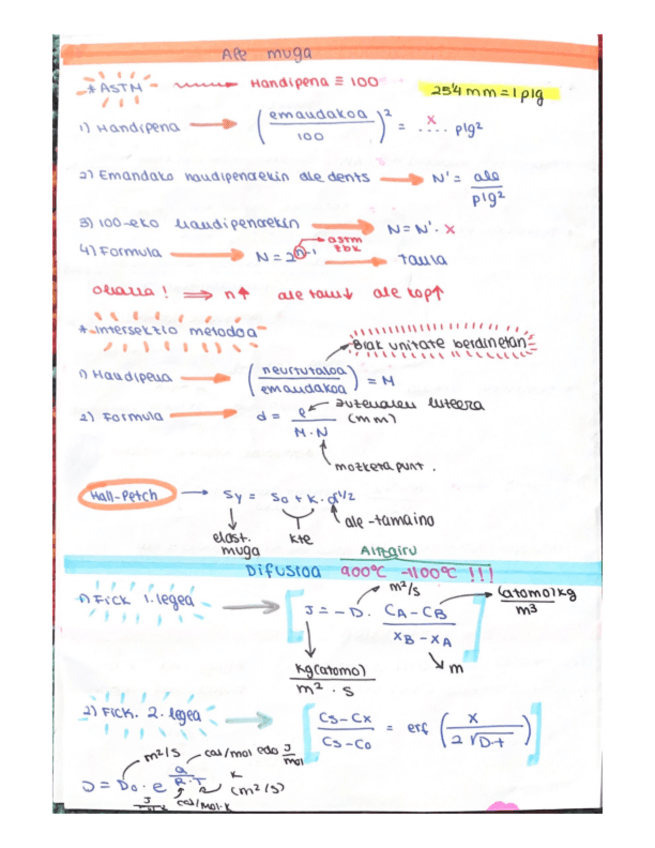 Ale muga
* ASTM → Handipena ≡ 100
25'4 mm = 1 plg
1) Handipena → (emandakoa / 100)² = x .... plg²
2) Emandako handipenarekin ale dents → N' = ale / plg²
3) 100-eko handipenarekin → N = N' · x
4) Formula → N = 2^(n-1) → taula
astm zbk
oharra ! ⇒ n↑ ale tam↓ ale kop↑
* Intersekzio metodoa
Biak unitate berdinetan
1) Handipena → (neurtutakoa / emandakoa) = M
2) Formula → d = l / M·N
zuzenaren luzera (mm)
mozketa punt.
Hall-Petch → Sy = S0 + K · d^1/2
elast. muga
kte
ale-tamaina
Difusioa 900ºC - 1100ºC !!!
1) Fick 1. legea → [J = -D · (CA - CB) / (xB - xA)]
m²/s
(atomo) kg / m3
kg (atomo) / m² · s
m
2) Fick. 2. legea → [(Cs - Cx) / (Cs - Co) = erf (x / 2√D·t)]
m²/s
cal/mol edo J/mol
D = Do · e^(Q / R·T) (m²/s)
K
cal/mol·K